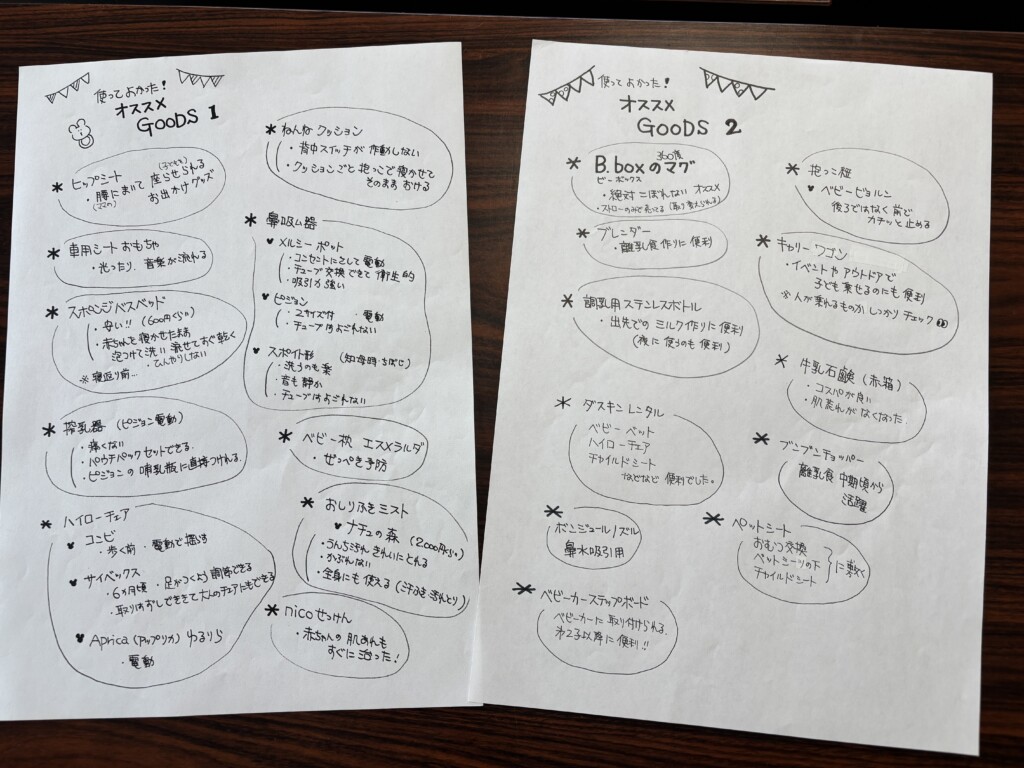 使ってよかった!
オススメ
GOODS 1
* ヒップシート
・腰にまいて (子どもを) 座らせられる
(ママの) お出かけグッズ
* 車用シート おもちゃ
・光ったり、音楽が流れる
* スポンジバスベッド
・安い!! (600円くらい)
・赤ちゃんを寝かせたまま
泡つけて洗い流せてすぐ乾く
・ひんやりしない
※寝返り前...
* 搾乳器 (ピジョン電動)
・痛くない
・パウチパックセットできる。
・ピジョンの哺乳瓶に直接つけれる。
* ハイローチェア
コンビ
・歩く前 ・電動で揺らす
サイベックス
・6か月頃 ・足がつくよう調節できる
・取りはずしできて大人のチェアにもできる
Aprica (アップリカ) ゆるりら
・電動
* ねんねクッション
・背中スイッチが作動しない
・クッションごと抱っこで寝かせて
そのままおける
* 鼻吸い器
メルシーポット
・コンセントにさして電動
・チューブ交換できて衛生的
・吸引力強い
ピジョン
・2サイズ付 ・電動
・チューブはよごれない
スポイト形 (知母時・ちぼじ)
・洗うのも楽
・音も静か
・チューブはよごれない
* ベビー枕 エスメラルダ
・ぜっぺき予防
* おしりふきミスト
ナチュの森 (2000円くらい)
・うんちよごれきれいにとれる
・かぶれない
・全身にも使える (ニキふき 汚れとり)
* nicoせっけん
・赤ちゃんの肌あれも
すぐに治った!
使ってよかった!
オススメ
GOODS 2
* B.boxの360度マグ
ビーボックス
・絶対こぼれない オススメ
・ストローのみで売ってる (取り替えられる)
* ブレンダー
・離乳食作りに便利
* 調乳用ステンレスボトル
・出先でのミルク作りに便利
(夜に使うのも便利)
* ダスキンレンタル
ベビーベット
ハイローチェア
チャイルドシート
などなど 便利でした。
* ボンジュールノズル
鼻水吸引用
* ベビーカーステップボード
ベビーカーに取り付けられる。
第2子以降に便利!!
* 抱っこ紐
ベビービョルン
後ろではなく前で
カチッと止める
* キャリーワゴン
・イベントやアウトドアで
子ども乗せるのにも便利
※人が乗れるものかしっかりチェック
* 牛乳石鹸 (赤箱)
・コスパが良い
・肌荒れがなくなった。
* ブンブンチョッパー
離乳食中期頃から
活躍
* ペットシート
おむつ交換
ベットシーツの下
チャイルドシート
に敷く